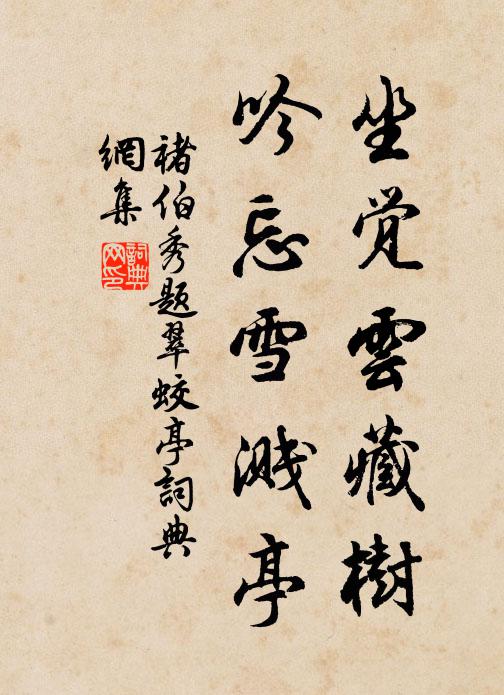 坐觉雲藏樹
吟忘雪溅亭
褚伯秀题翠蛟亭詞典
網集
詞典网印